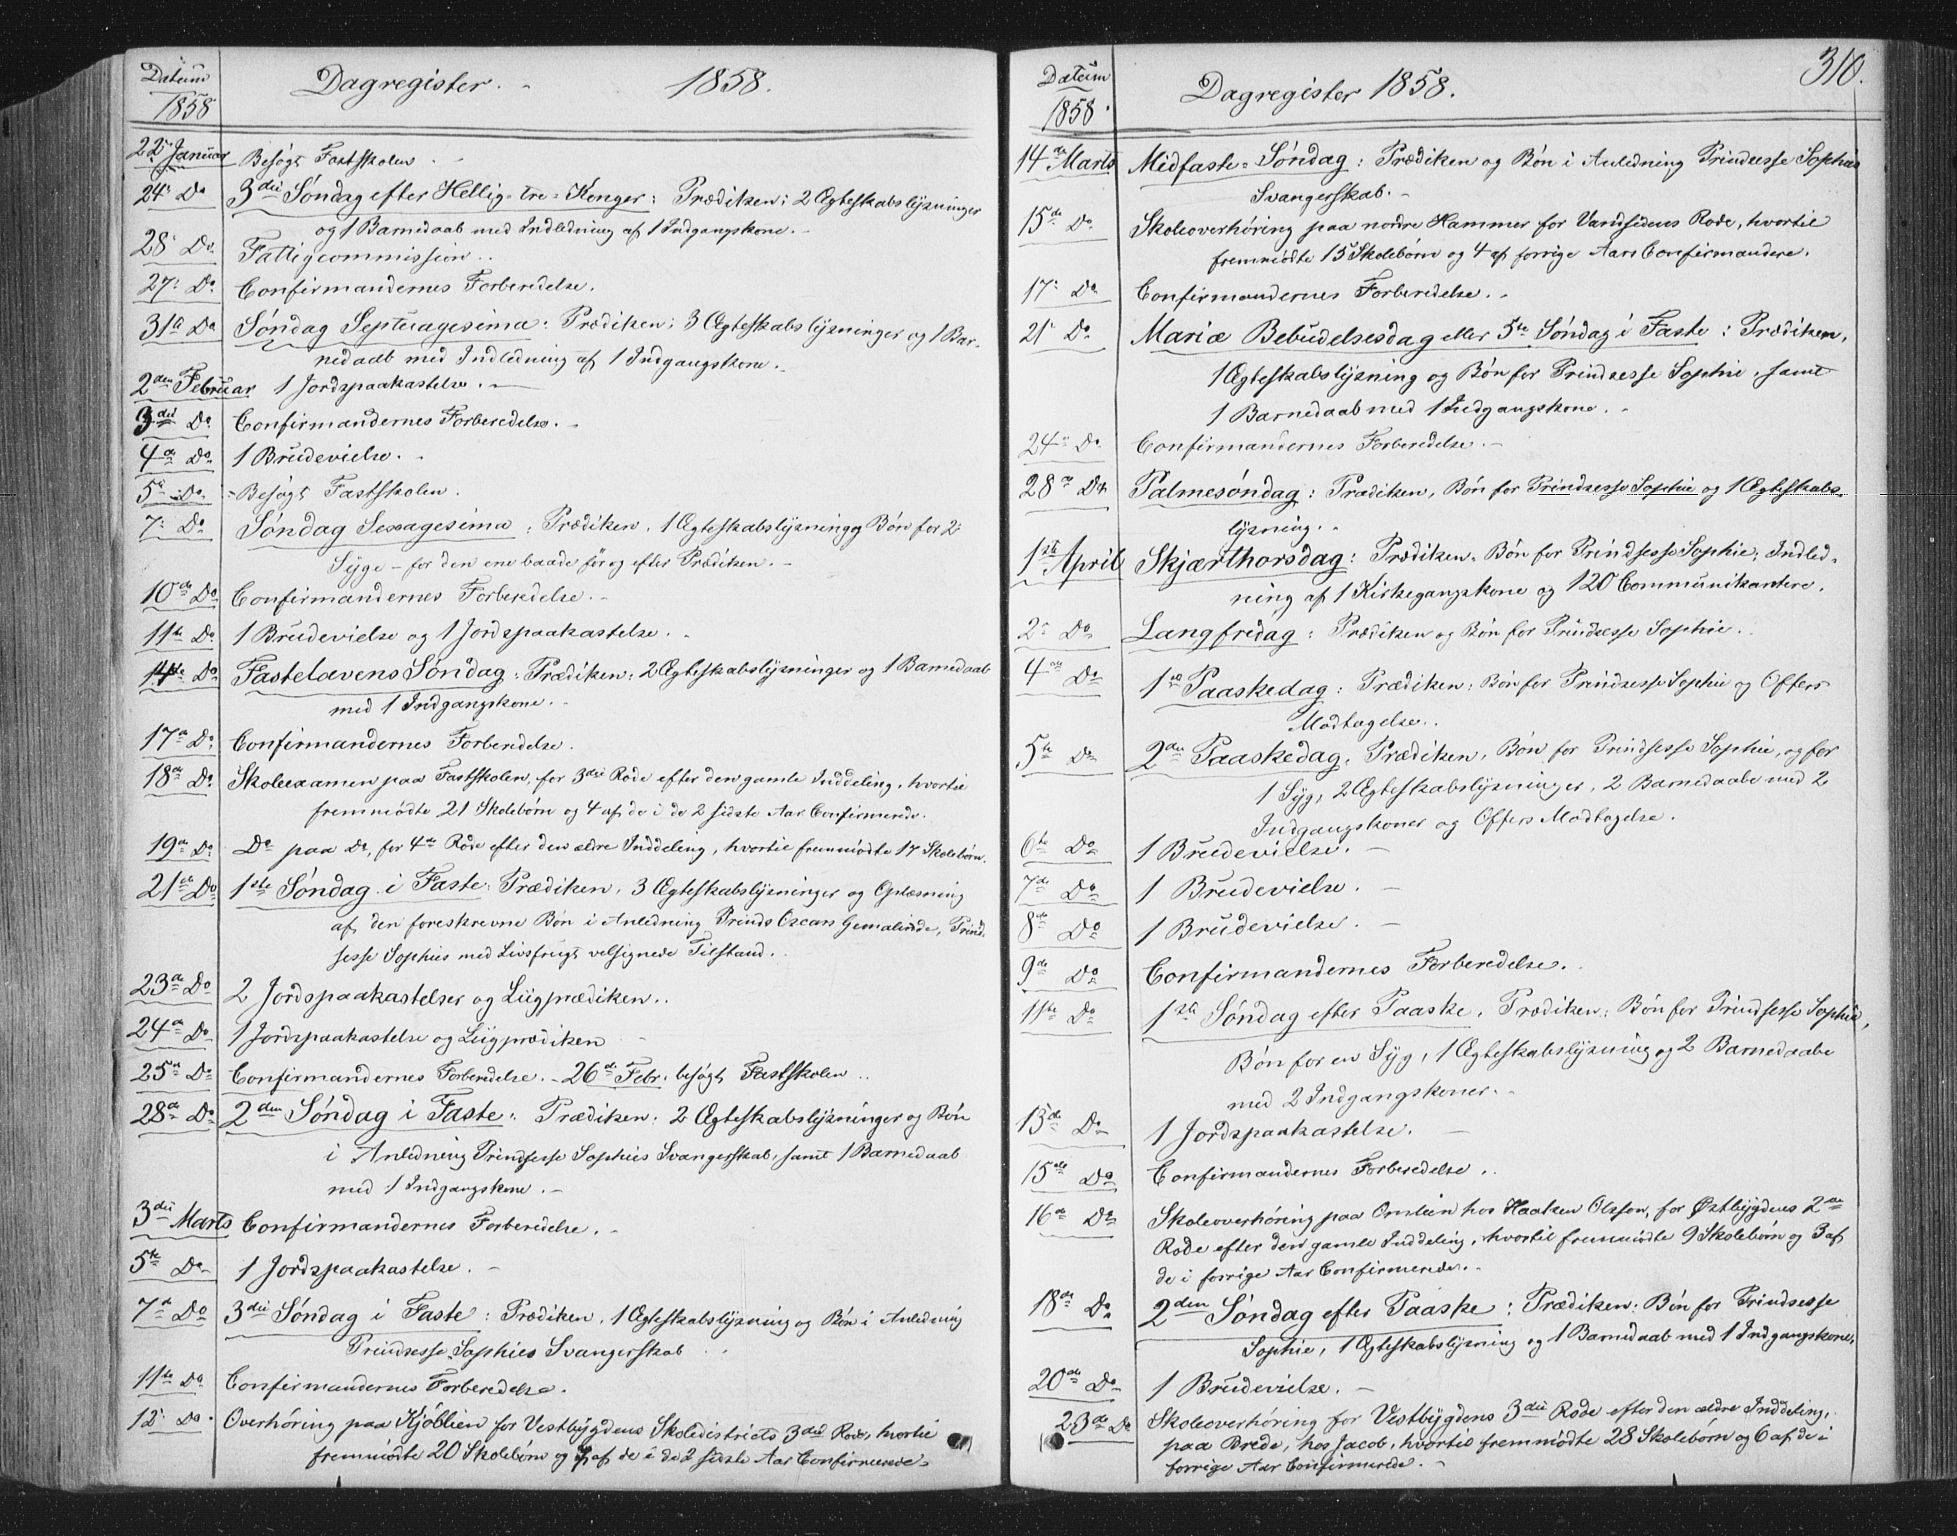 Datum
1858
Dagregister. 1858.
22. Januar Besøgt Fastskolen.
24. Do 3die Søndag efter Hellig-tre-Konger: Prædiken; 2 Ægteskabslysninger
og 1 Barnedaab med Indledning af 1 Indgangskone.
28. Do Fattigcommission.
27. Do Confirmandernes Forberedelse.
31te Do Søndag Septuagesima: Prædiken; 3 Ægteskabslysninger og 1 Bar-
nedaab med Indledning af 1 Indgangskone.
2den Februar 1 Jordspaakastelse.
3die Do Confirmandernes Forberedelse.
4de Do 1 Brudevielse.
5te Do Besøgt Fastskolen.
7. Do Søndag Sexagesima: Prædiken, 1 Ægteskabslysning og Bøn for 2
Syge - for den ene baade før og efter Prædiken.
10de Do Confirmandernes Forberedelse.
11te Do 1 Brudevielse og 1 Jordspaakastelse.
14de Do Fastelavens Søndag: Prædiken; 2 Ægteskabslysninger og 1 Barnedaab
med 1 Indgangskone.
17de Do Confirmandernes Forberedelse.
18de Do Skoleexamen paa Fastskolen, for 3die Rode efter den gamle Inddeling, hvortil
fremmødte 21 Skolebørn og 4 af de i de 2 sidste Aar Confirmerede.
19de Do Do paa do, for 4de Rode efter den ældre Inddeling, hvortil fremmødte 17 Skolebørn.
21de Do 1ste Søndag i Faste: Prædiken, 3 Ægteskabslysninger og Oplæsning
af den foreskrevne Bøn i Anledning Prinds Oscars Gemalinde, Prind-
sesse Sophies med Livsfrugt velsignede Tilstand.
23de Do 2 Jordspaakastelser og Liigprædiken.
24de Do 1 Jordspaakastelse og Liigprædiken
25de Do Confirmandernes Forberedelse. - 26de Febr. besøgt Fastskolen.
28de Do 2den Søndag i Faste: Prædiken. 2 Ægteskabslysninger og Bøn
i Anledning Prindsesse Sophies Svangerskab, samt 1 Barnedaab
med 1 Indgangskone.
3die Marts Confirmandernes Forberedelse.
5te Do 1 Jordspaakastelse.
7de Do 3die Søndag i Faste: Prædiken, 1 Ægteskabslysning og Bøn i Anledning
Prindsesse Sophies Svangerskab
11te Do Confirmandernes Forberedelse.
12. Do Overhøring paa Kjøblien for Vestbygdens Skoledistricts 3die Rode, hvortil
fremmødte 20 Skolebørn og 7 af de i de 2 sidste Aar Confirmerede.
310.
Datum
1858.
Dagregister 1858.
14de Marts Midfaste-Søndag: Prædiken og Bøn i Anledning Prindsesse Sophies
Svangerskab.
15de Do Skoleoverhøring paa nordre Hammer for Vandsidens Rode, hvortil
fremmødte 15 Skolebørn og 4 af forrige Aars Confirmandere.
17. Do Confirmandernes Forberedelse.
21. Do Mariæ Bebudelsesdag eller 5te Søndag i Faste: Prædiken,
1 Ægteskabslysning og Bøn for Prindsesse Sophie, samt
1 Barnedaab med 1 Indgangskone.
24de Do Confirmandernes Forberedelse.
28de Do Palmesøndag: Prædiken, Bøn for Prindsesse Sophie og 1 Ægteskabs-
lysning.
1ste April Skjærthorsdag: Prædiken. Bøn for Prindsesse Sophie; Indled-
ning af 1 Kirkegangskone og 120 Communikantere.
2. Do Langfredag: Prædiken og Bøn for Prindsesse Sophie.
4de Do 1ste Paaskedag: Prædiken; Bøn for Prindsesse Sophie og Offers
Modtagelse.
5te Do 2den Paaskedag, Prædiken, Bøn for Prindsesse Sophie, og for
1 Syg, 2 Ægteskabslysninger, 2 Barnedaabe med 2
Indgangskoner og Offers Modtagelse.
6te Do 1 Brudevielse.
7de Do 1 Brudevielse.
8de Do 1 Brudevielse.
9de Do Confirmandernes Forberedelse.
11te Do 1ste Søndag efter Paaske, Prædiken; Bøn for Prindsesse Sophie,
Bøn for en Syg, 1 Ægteskabslysning og 2 Barnedaabe
med 2 Indgangskoner.
13de Do 1 Jordspaakastelse.
15de Do Confirmandernes Forberedelse.
16de Do Skoleoverhøring paa Omlien hos Haaken Olsson, for Østbygdens 2den
Rode efter den gamle Inddeling, hvortil fremmødte 9 Skolebørn og 3 af
de i forrige Aar Confirmerede.
18de Do 2den Søndag efter Paaske: Prædiken; Bøn for Prindsesse
Sophie, 1 Ægteskabslysning og 1 Barnedaab med 1 Indgangskone.
20de Do 1 Brudevielse.
23de Do Skoleoverhøring for Vestbygdens 3die Rode efter den ældre Inddeling,
paa Brede, hos Jacob, hvortil fremmødte 28 Skolebørn og 6 af de i
forrige Aar Confirmerede.